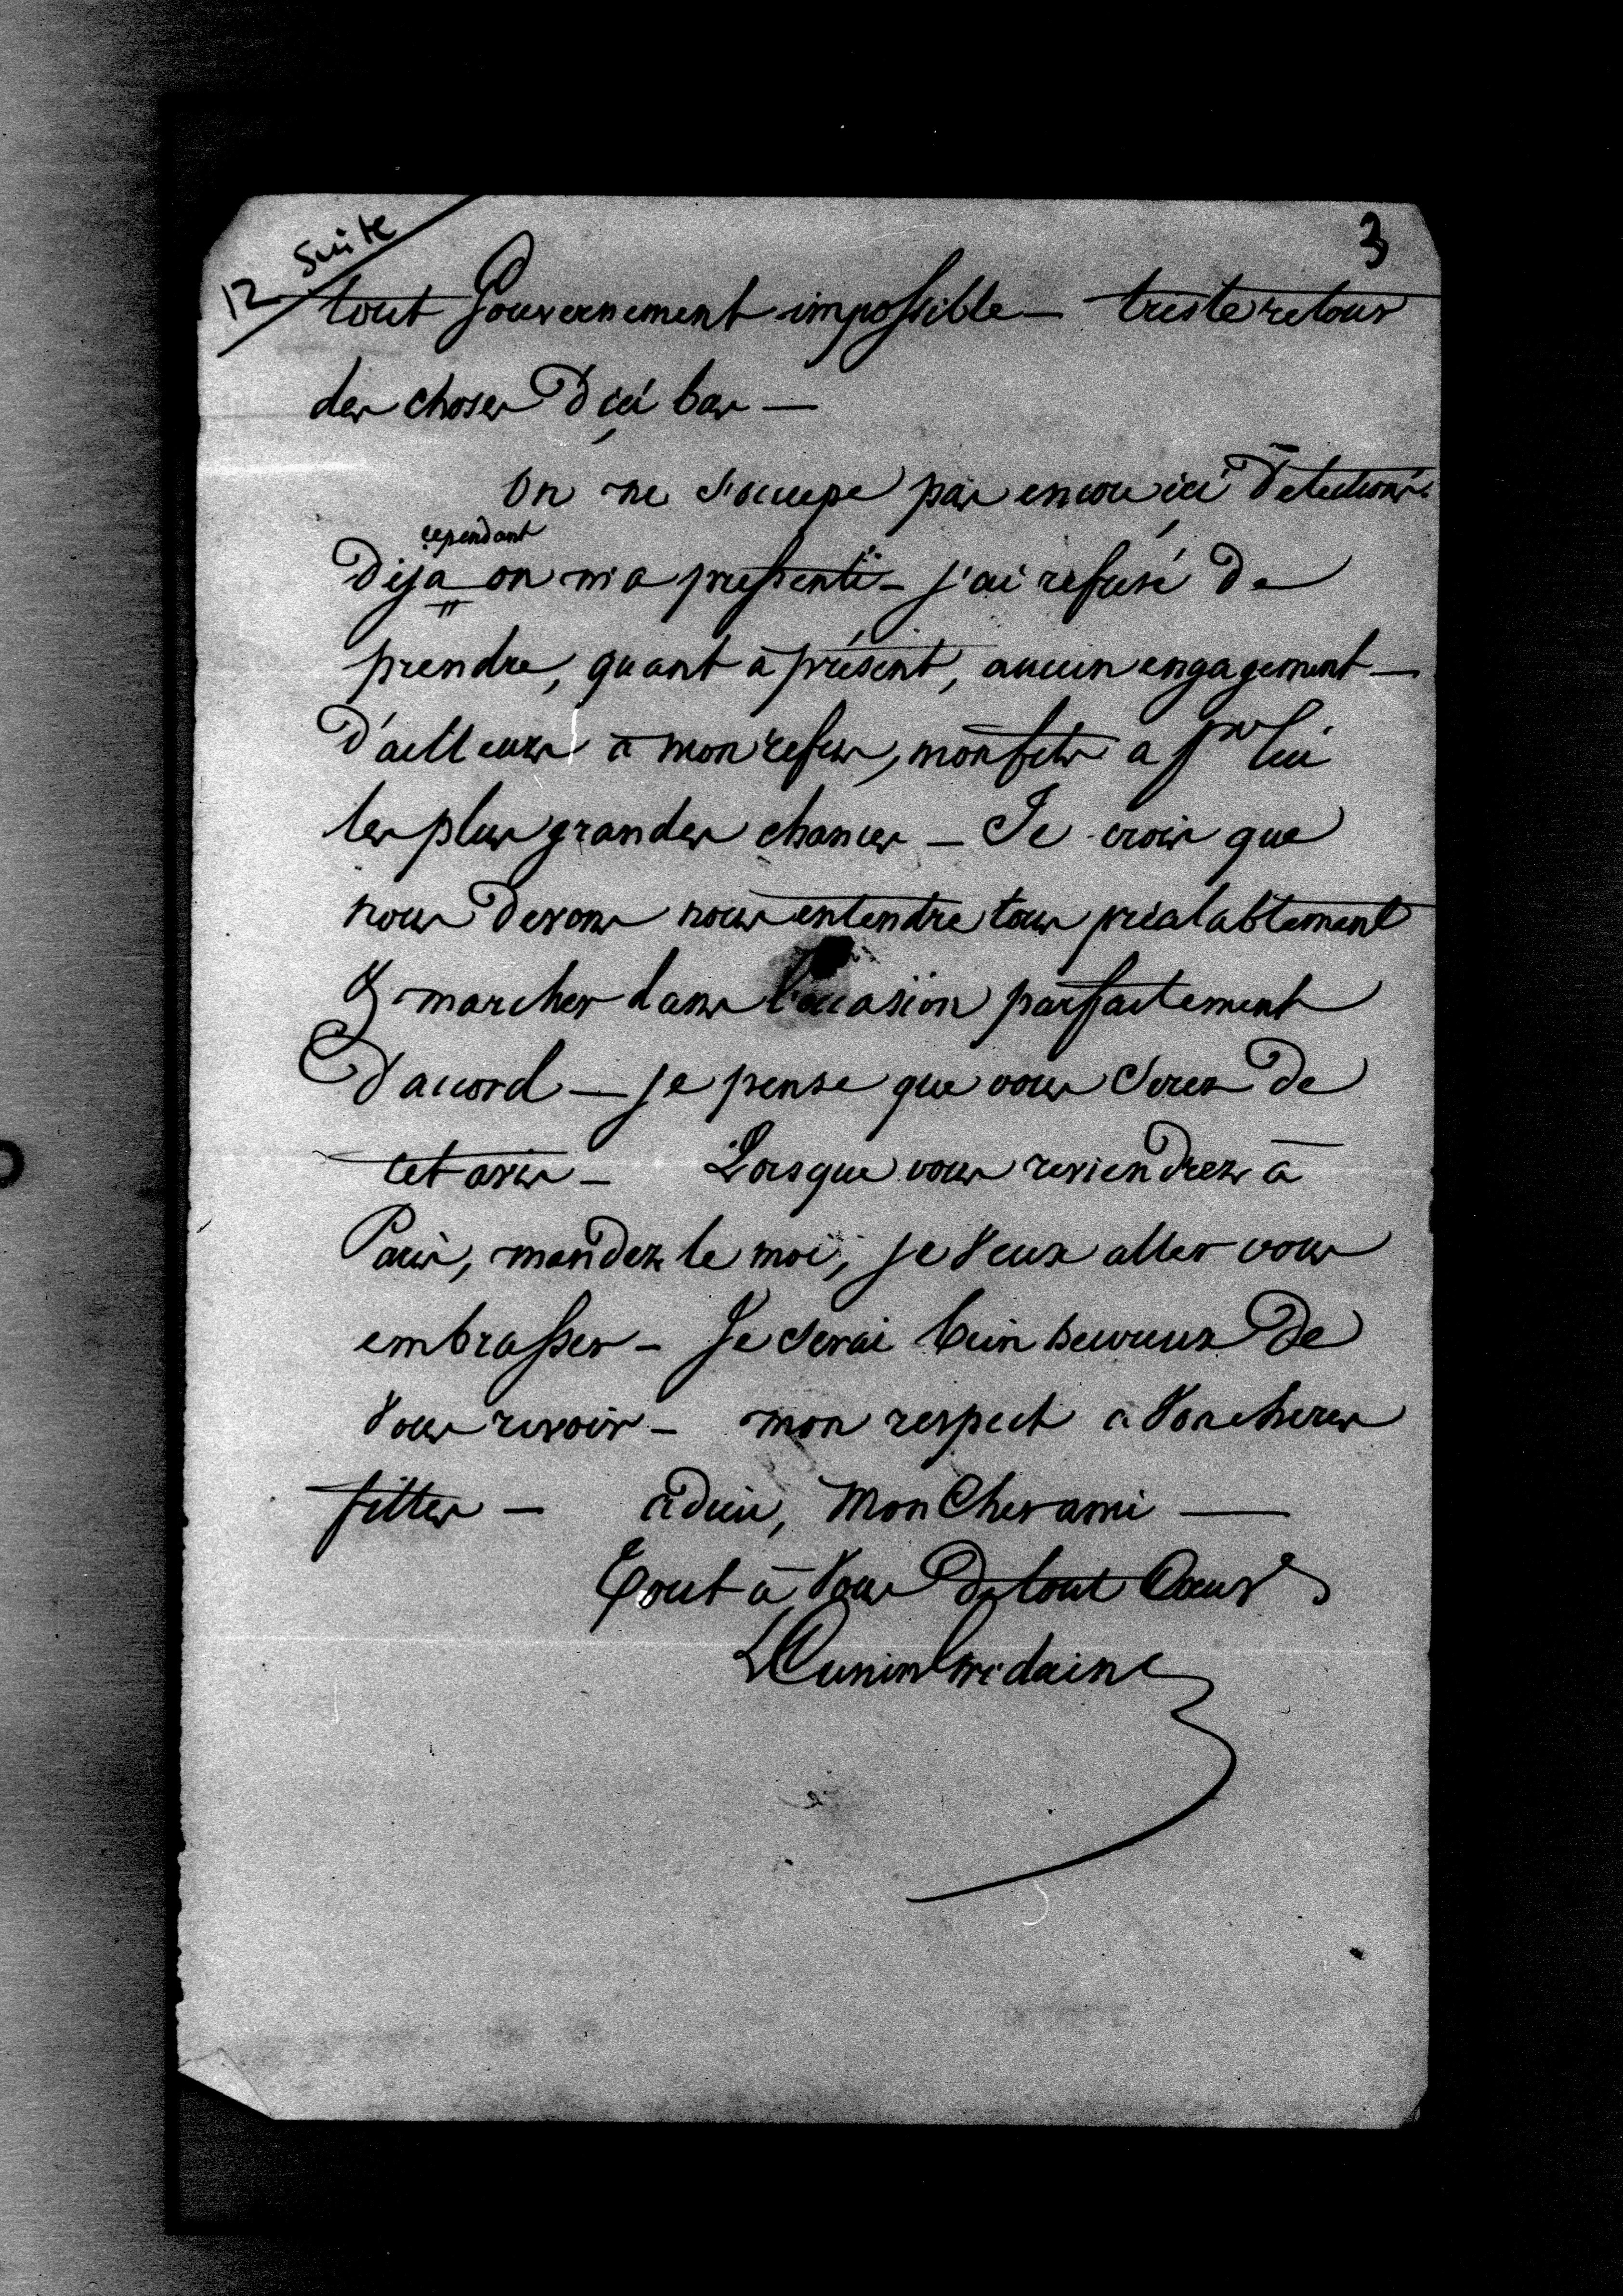 12 Suite
3
tout Gouvernement impossible – triste retour
des choses d'ici bas –
On ne s'occupe pas encore ici d'élections
cependant
Déjà on m'a pressenti – j'ai refusé de
prendre, quant à présent, aucun engagement –
D'ailleurs à mon refus, mon fils a pr lui
les plus grandes chances – Je crois que
nous devons nous entendre tous préalablement
& marcher dans l'occasion parfaitement
d'accord – je pense que vous serez de
cet avis – Lorsque vous reviendrez à
Paris, mandez le moi, je veux aller vous
embrasser – Je serai bien heureux de
vous revoir – mon respect à vos chères
filles – adieu, mon cher ami –
Tout à vous de tout cœur
LCuninGridaine